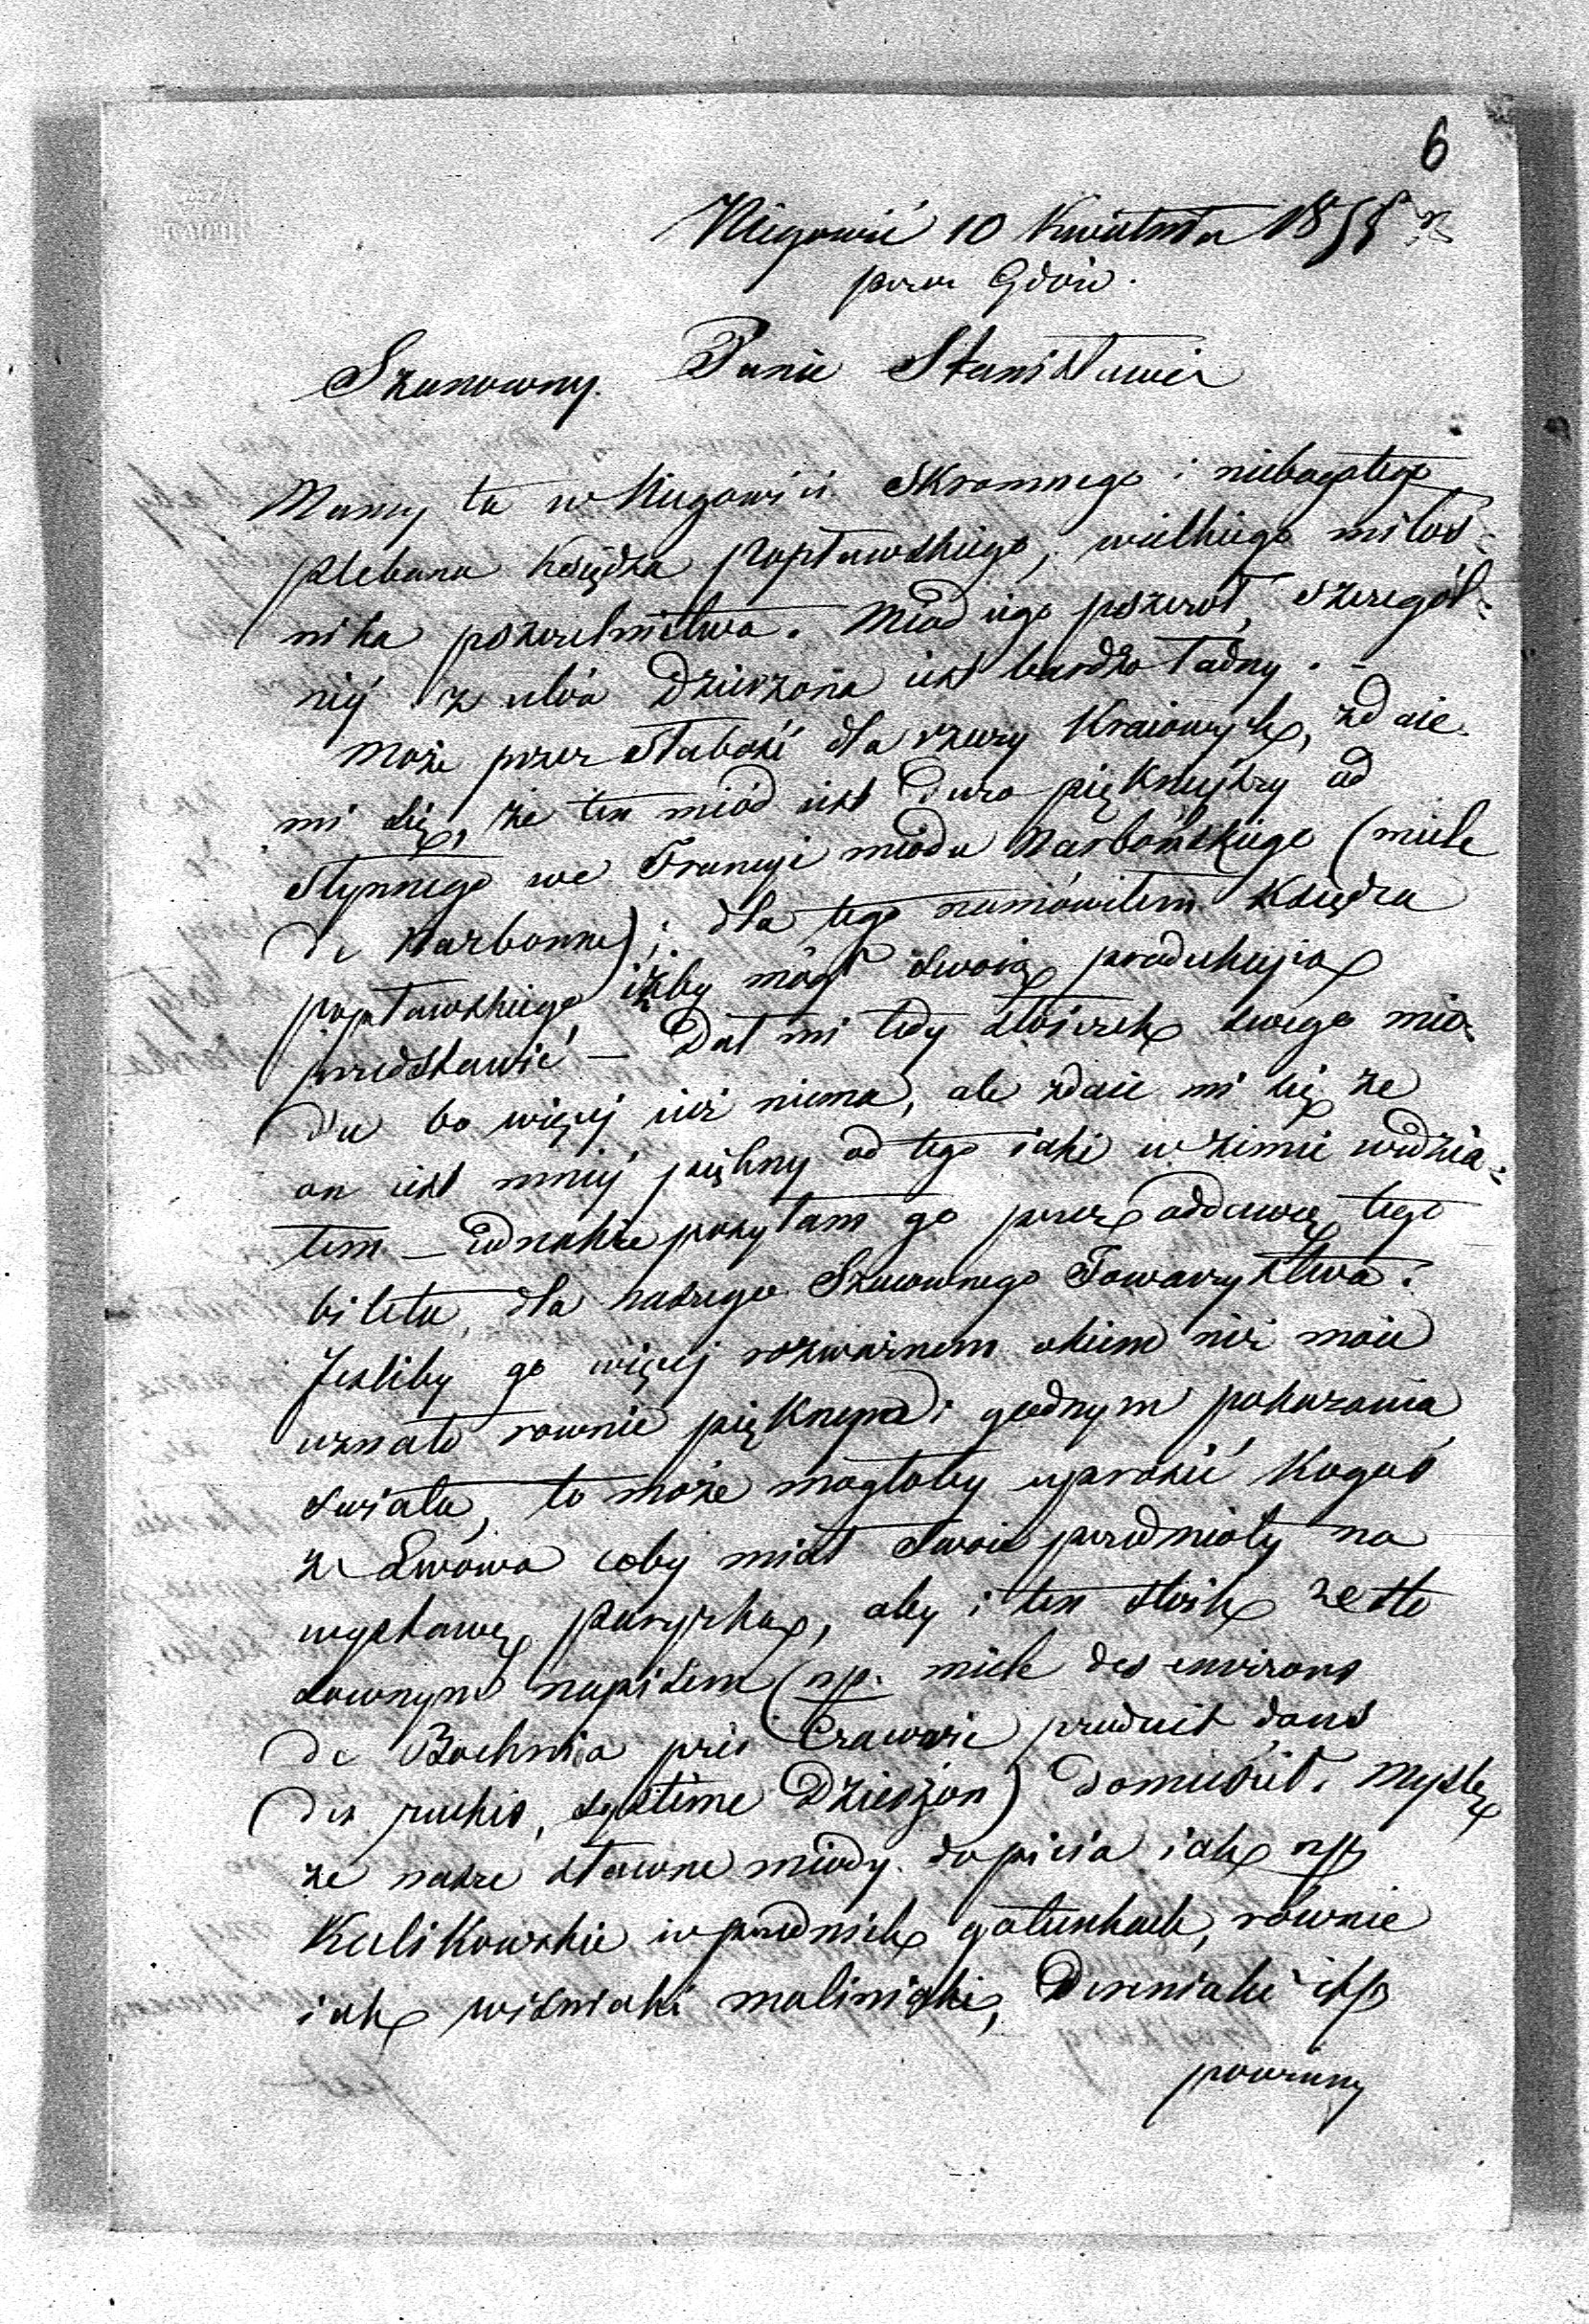 6
Niegowić 10 Kwietnia 1855
przez Gdów.
Szanowny Panie Stanisławie
Mamy tu w Niegowici skromnego i niebogatego
plebana księdza Popławskiego, wielkiego miłoś-
nika pszczelnictwa. Miód iego pszczół, szczegól-
niej z ulóa Dzierżona iest bardzo ładny. -
Może przez słabość dla rzeczy kraiowych, zdaie
mi się, że ten miód iest dużo pięknieyszy od
słynnego we Francyi miodu Narbońskiego (miele
de Narbonne); dla tego namówiłem księdza
Popławskiego iżby mógł swoią produkcyią
przedstawić - Dał mi tedy słoiczek swego mio-
du bo więcej iuż niema, ale zdaie mi się że
on iest mniej piękny od tego iaki w zimie widzia-
łem - iednakże posyłam go przez oddawcę tego
biletu, dla naszego Szanownego Towarzystwa.
Jesliby go więcej rozważnem okiem niż moie
uznało rownie pięknym i godnym pokazania
światu, to może mogłoby uprosić kogoś
z Lwowa coby miał swoie przedmioty na
wystawę paryzką, aby i ten słoik ze sto
sownym napisem (np. miele des environs
de Bochnia près Cracovie produit dans
des ruches, système Dzierżon) domieścił. Myslę
że nasze sławne miody do picia iak np
Kulikowskie w przednich gatunkach, równie
iak wiśniaki maliniaki, Dereniaki itp
powinny